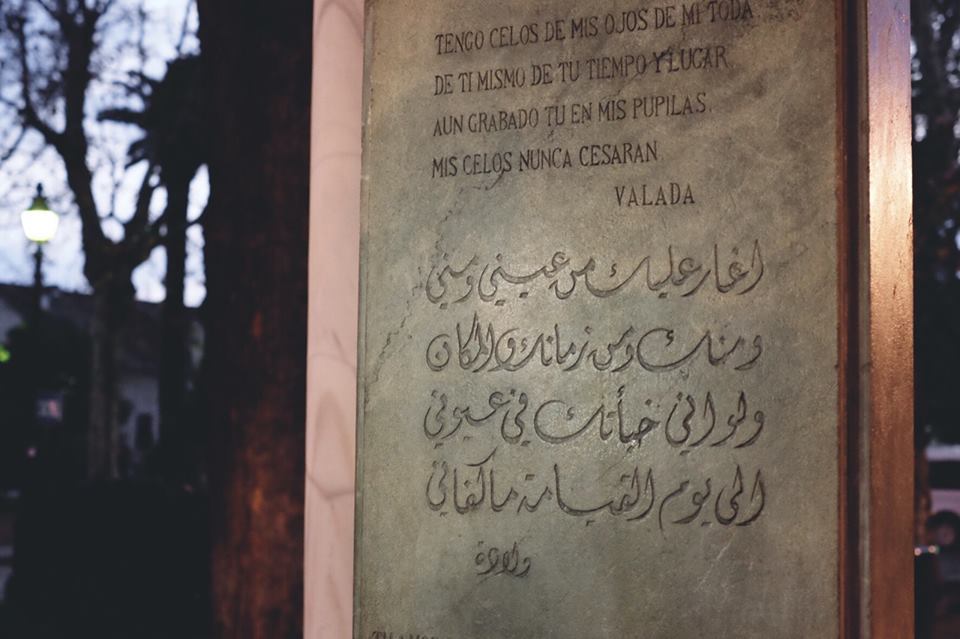 TENGO CELOS DE MIS OJOS DE MI TODA
DE TI MISMO DE TU TIEMPO Y LUGAR
AUN GRABADO TU EN MIS PUPILAS.
MIS CELOS NUNCA CESARAN
VALADA
اغار عليك من عيني ومني
ومنك ومن زمانك والمكان
ولو اني خبأتك في عيوني
الى يوم القيامة ما كفاني
ولادة